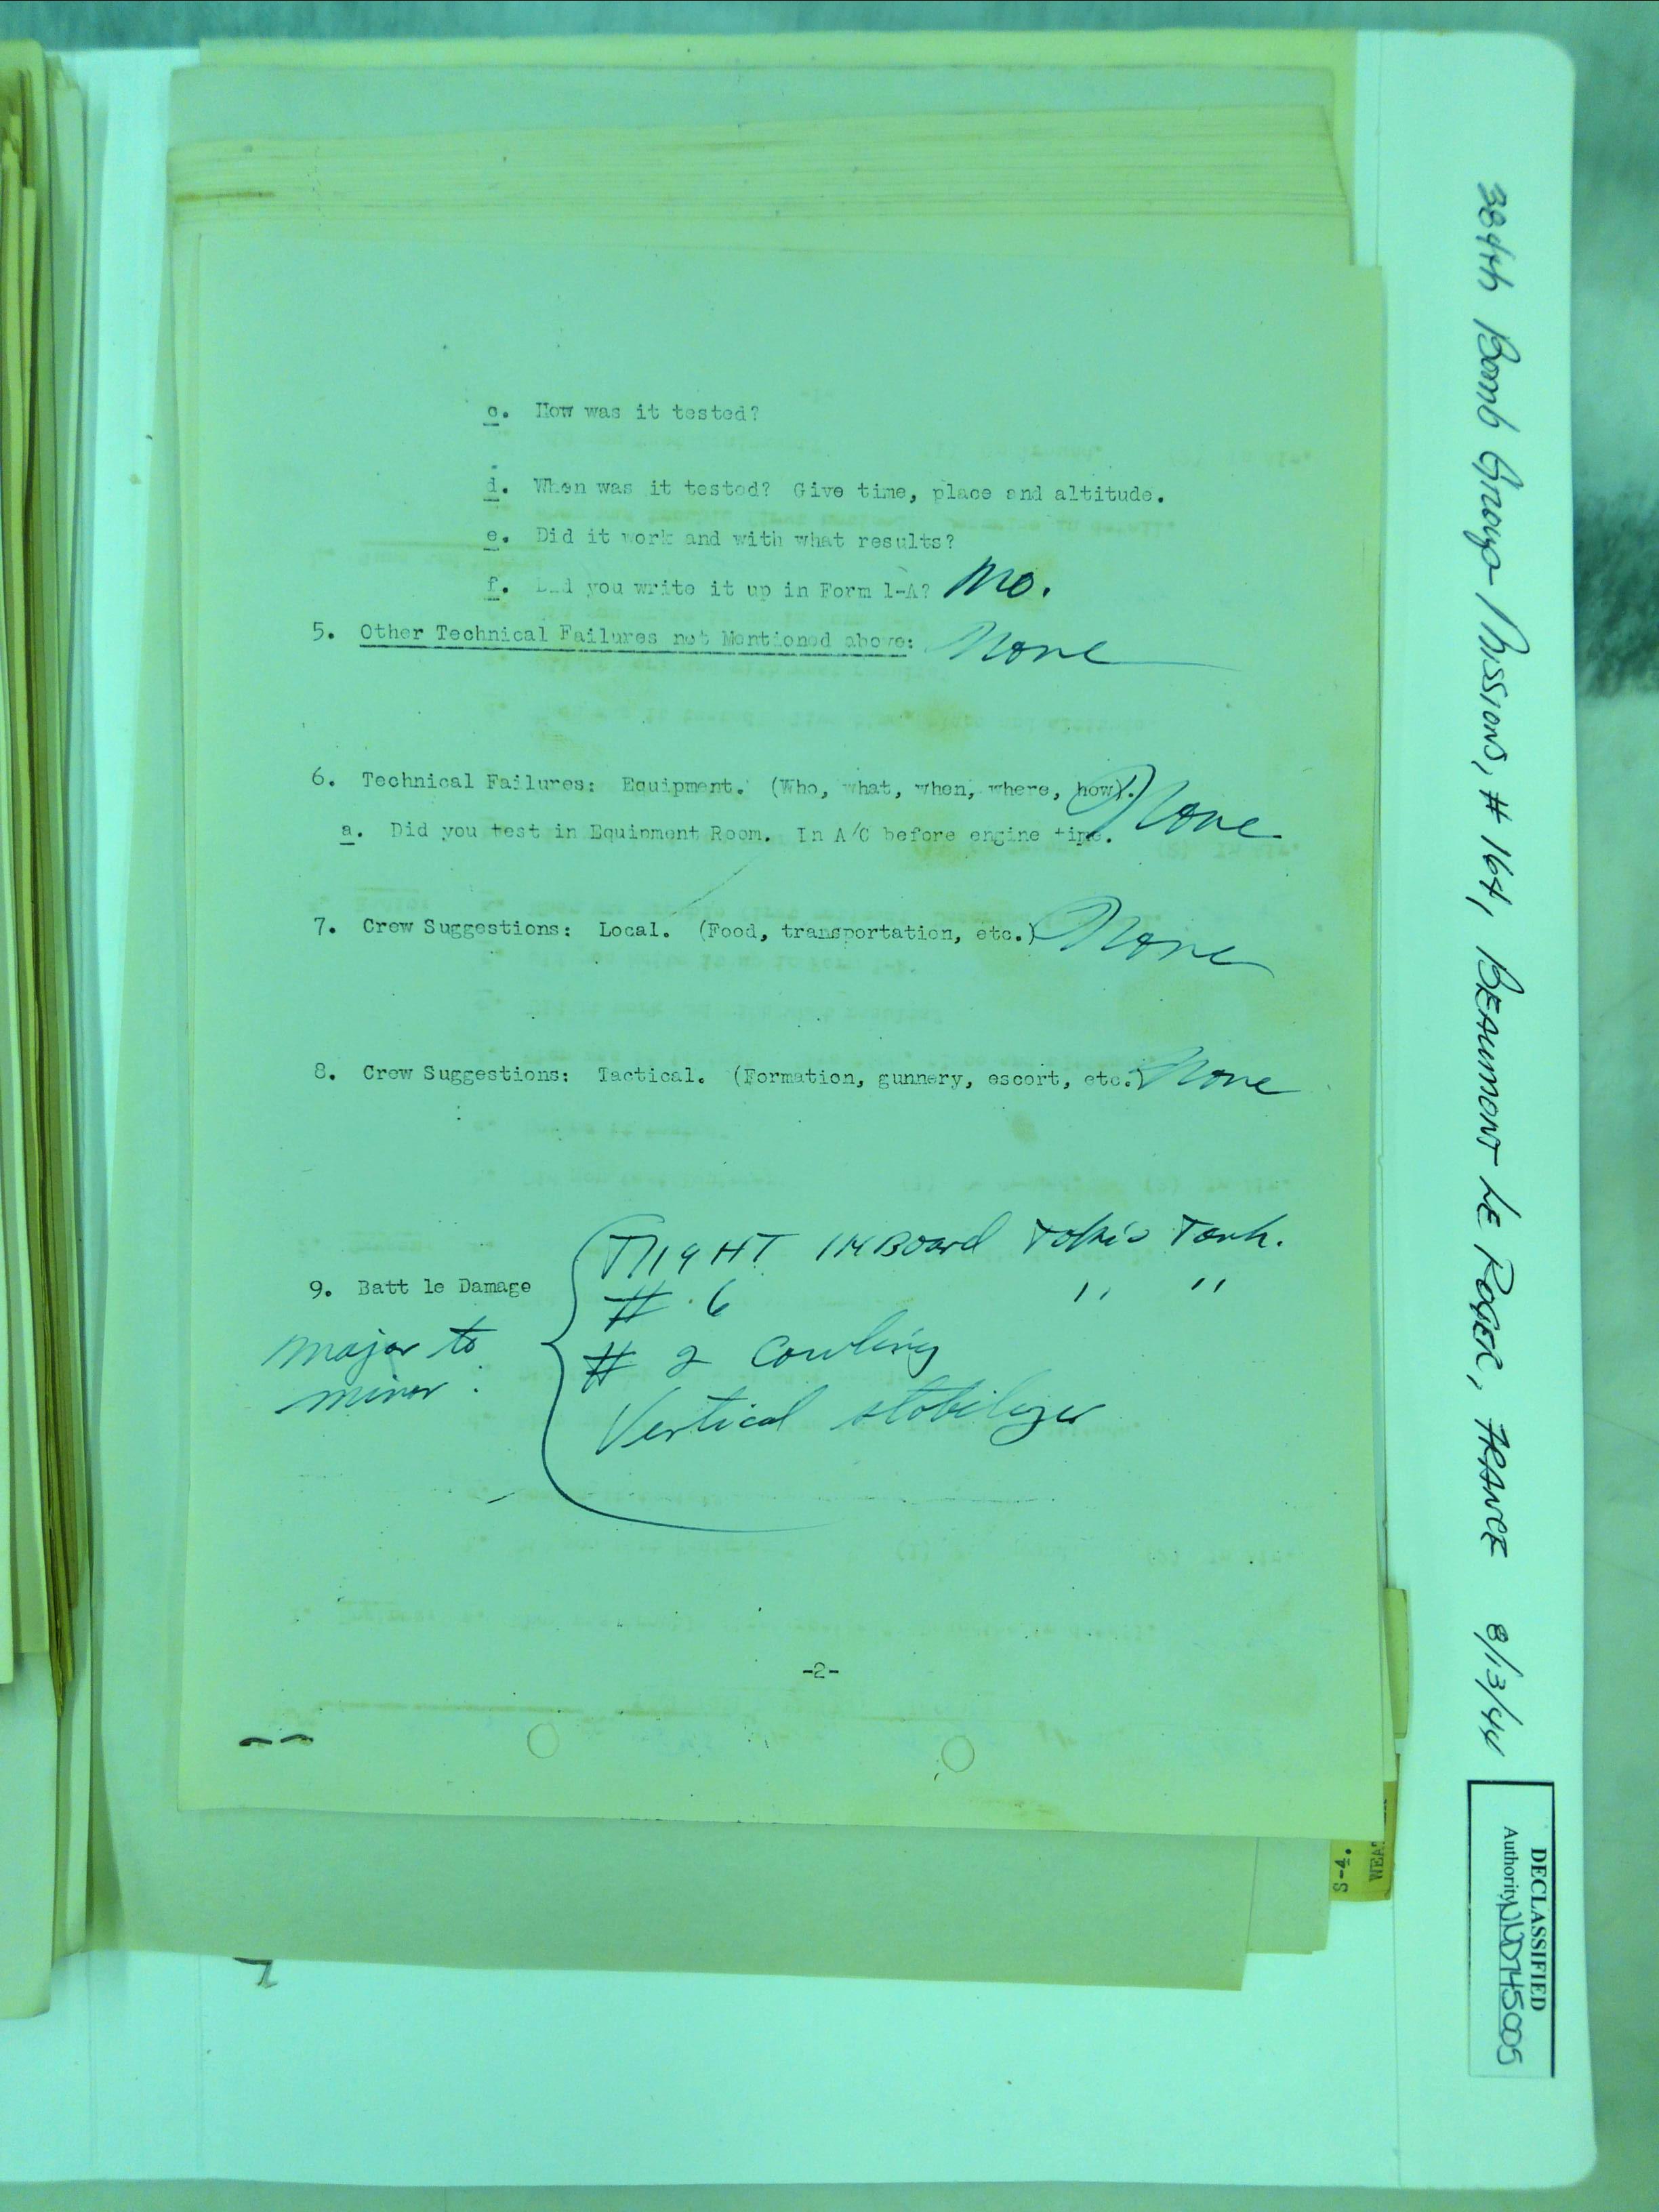 c. How was it tested?
d. When was it tested? Give time, place and altitude.
e. Did it work and with what results?
f. Did you write it up in Form 1-A? No.
5. Other Technical Failures not Mentioned above: None
6. Technical Failures: Equipment. (Who, what, when, where, how). None
a. Did you test in Equipment Room. In A/C before engine time.
7. Crew Suggestions: Local. (Food, transportation, etc.) None
8. Crew Suggestions: Tactical. (Formation, gunnery, escort, etc.) None
RIGHT INBoard Tokio Tank.
9. Batt le Damage
# 6 " "
major to
minor :
# 2 Cowling
Vertical stabilizer
-2-
384th Bomb Group Missions, # 164, BEAUMONT LE ROGER, FRANCE 8/13/44
DECLASSIFIED
Authority NND745005
S-4.